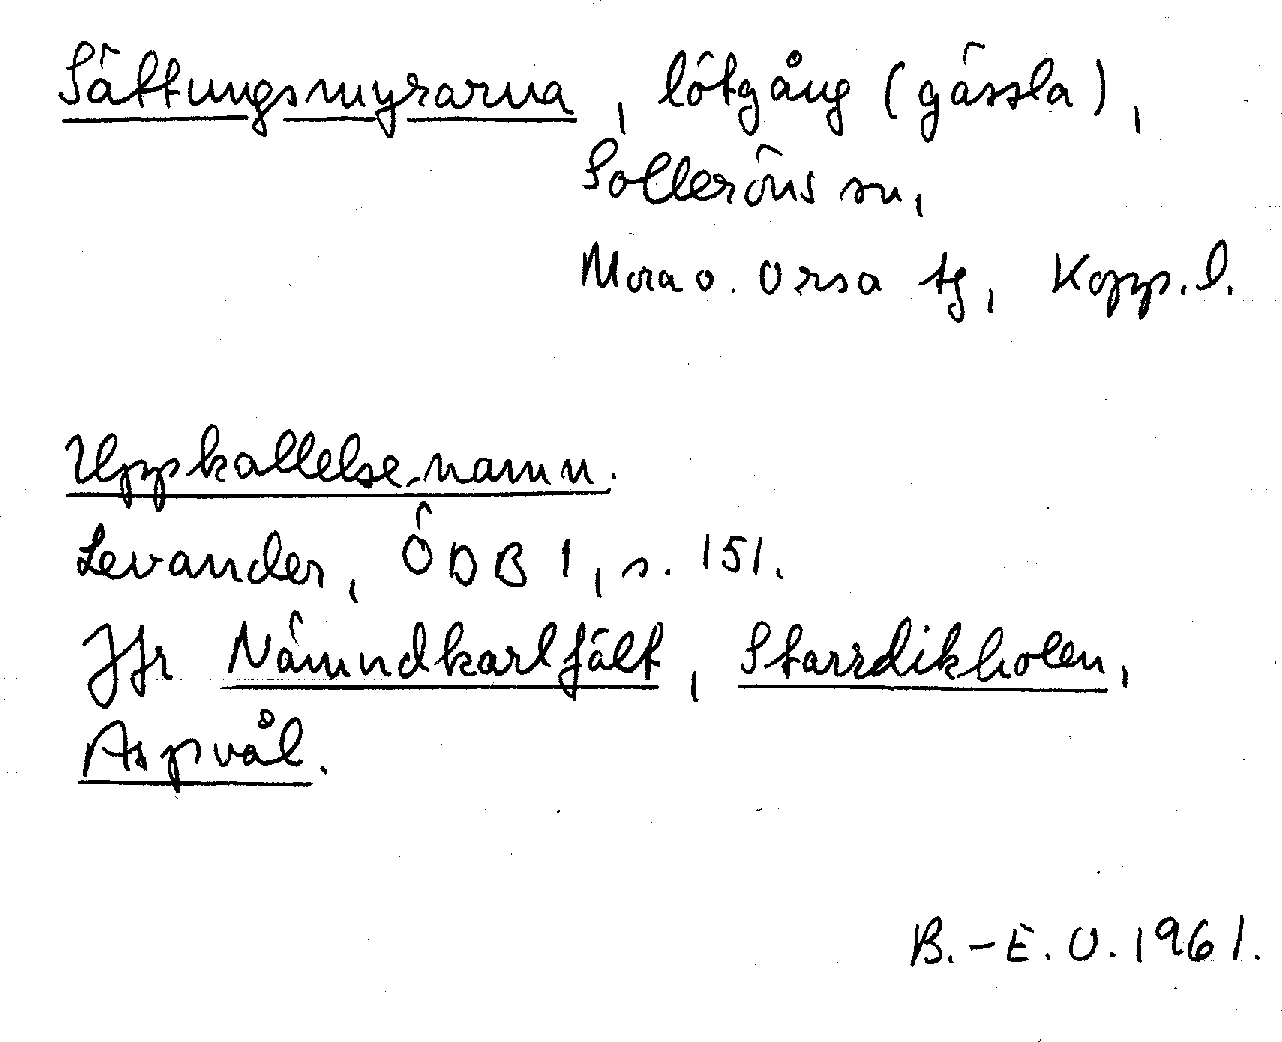 Sättungsmyrarna, lötgång (gässla),
Solleröns sn,
Mora o. Orsa tg, Kopp. l.
Uppkallelse-namn.
Levander, ÖDB I, s. 151.
Jfr Nämndkarlfält, Starrdikholen,
Aspvål.
B.-E. O. 1961.